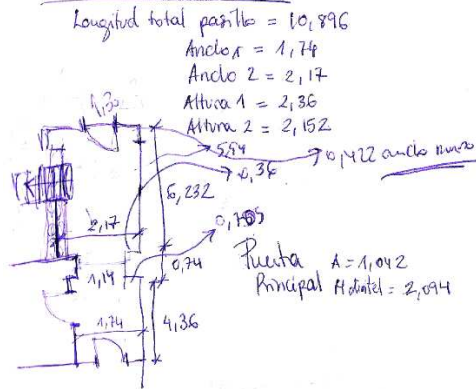 Longitud total pasillo = 10,896
Ancho 1 = 1,74
Ancho 2 = 2,17
Altura 1 = 2,36
Altura 2 = 2,152
1,30
5,94
0,422 ancho muro
0,36
6,232
2,17
1,14
0,74
Puerta A = 1,042
Principal H dintel = 2,094
1,74
4,36